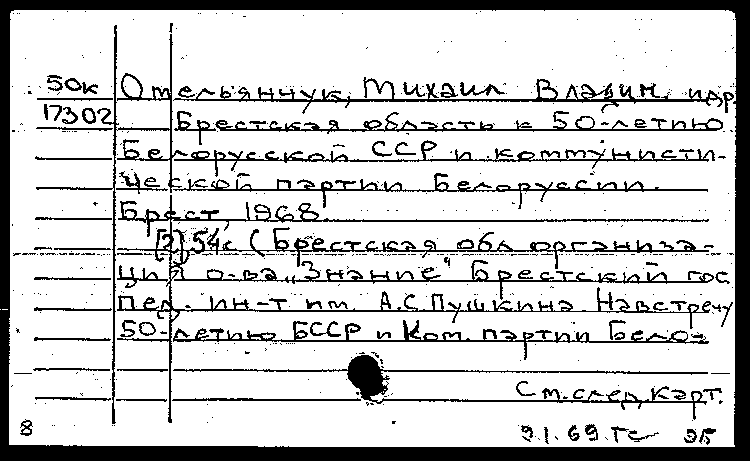 50к Омельянчук, Михаил Владим. и др.
17302 Брестская область к 50-летию
Белорусской ССР и коммунисти-
ческой партии Белоруссии.
Брест, 1968.
[2], 54с (Брестская обл организа-
ция о-ва „Знание" Брестский гос
пед. ин-т им. А.С. Пушкина. Навстречу
50-летию БССР и Ком. партии Бело-
См. след. карт.
8